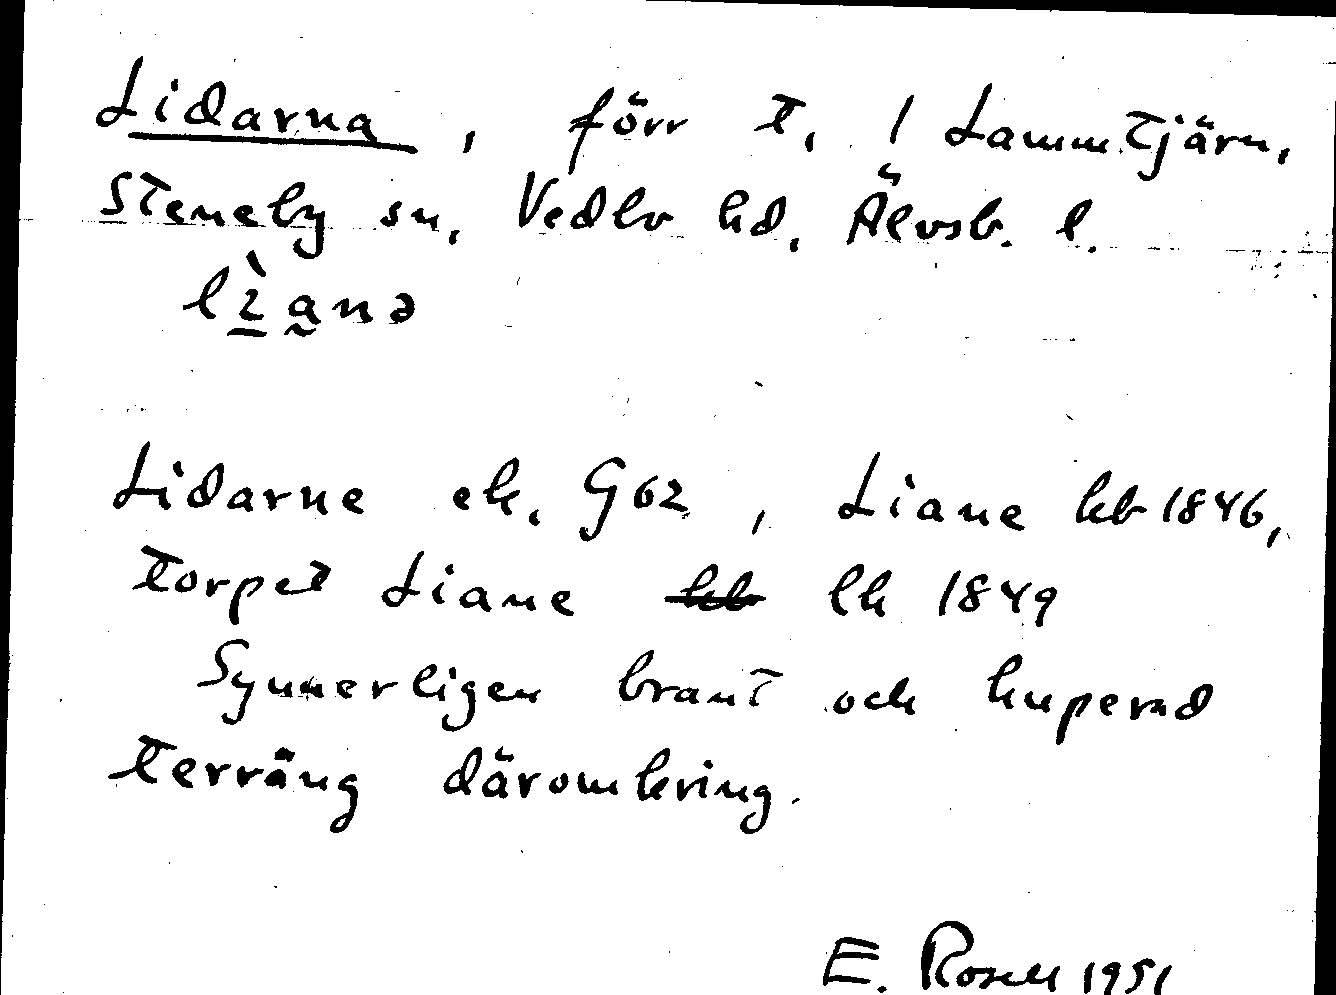 Lidarna, förr t. / Lammtjärn,
Steneby sn, Vedbo hd, Älvsb. l.
lìanə
Lidarne ek. G62, Liane kb 1846,
torpet Liane kb lk 1849
Synnerligen brant och kuperad
terräng däromkring.
E. Rosell 1951